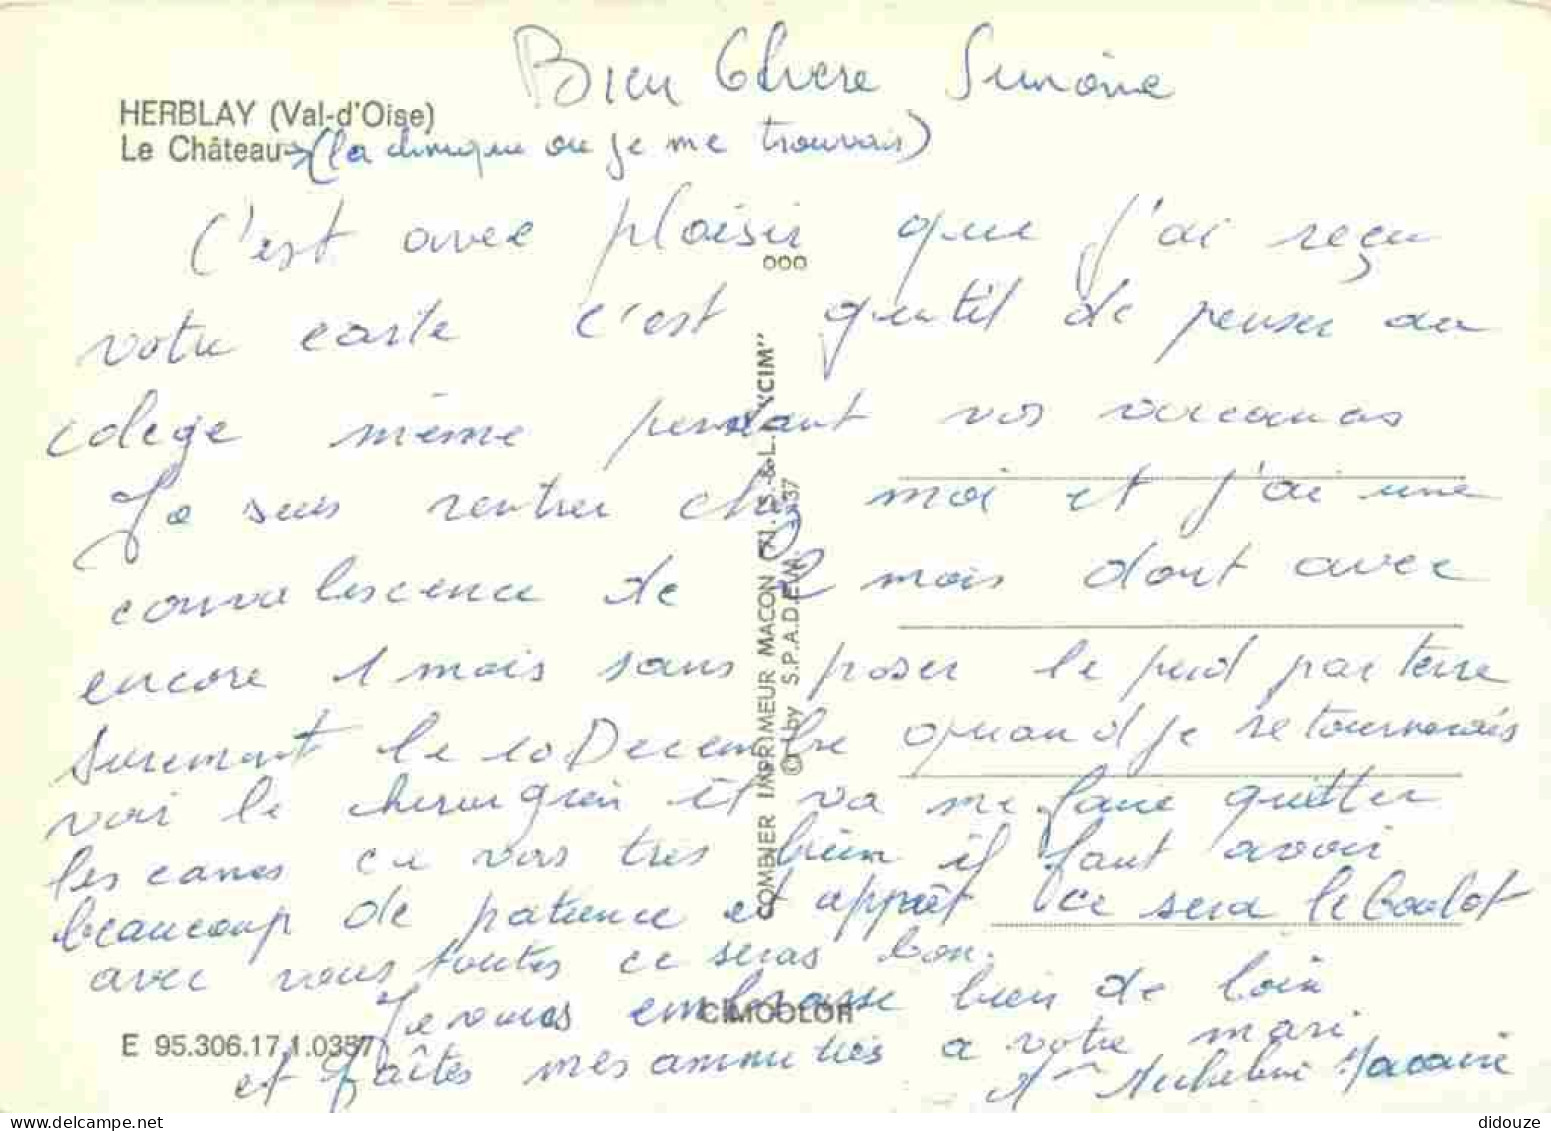 Bien Chere Simone
HERBLAY (Val-d'Oise)
Le Château → (la clinique ou je me trouvais)
C'est avec plaisir que j'ai reçu
votre carte c'est gentil de penser au
colege même pendant vos vacances
Je suis rentrer chez moi et j'ai une
convalescence de 2 mois dont avec
encore 1 mois sans poser le pied par terre
surement le 10 Decembre quand je retournerais
voir le chirurgien il va me faire quitter
les canes ce vas tres bien il faut avoir
beaucoup de patience et apprêt ce sera le boulot
avec vous toutes ce seras bon.
Je vous embrasse bien de loin
et faîtes mes ammitiés a votre mari
Micheline
COMBIER IMPRIMEUR MACON (71, S.-&-L.) "CIM"
© by S.P.A.D.E.M.
CIMCOLOR
E 95.306.17.1.0357
didouze